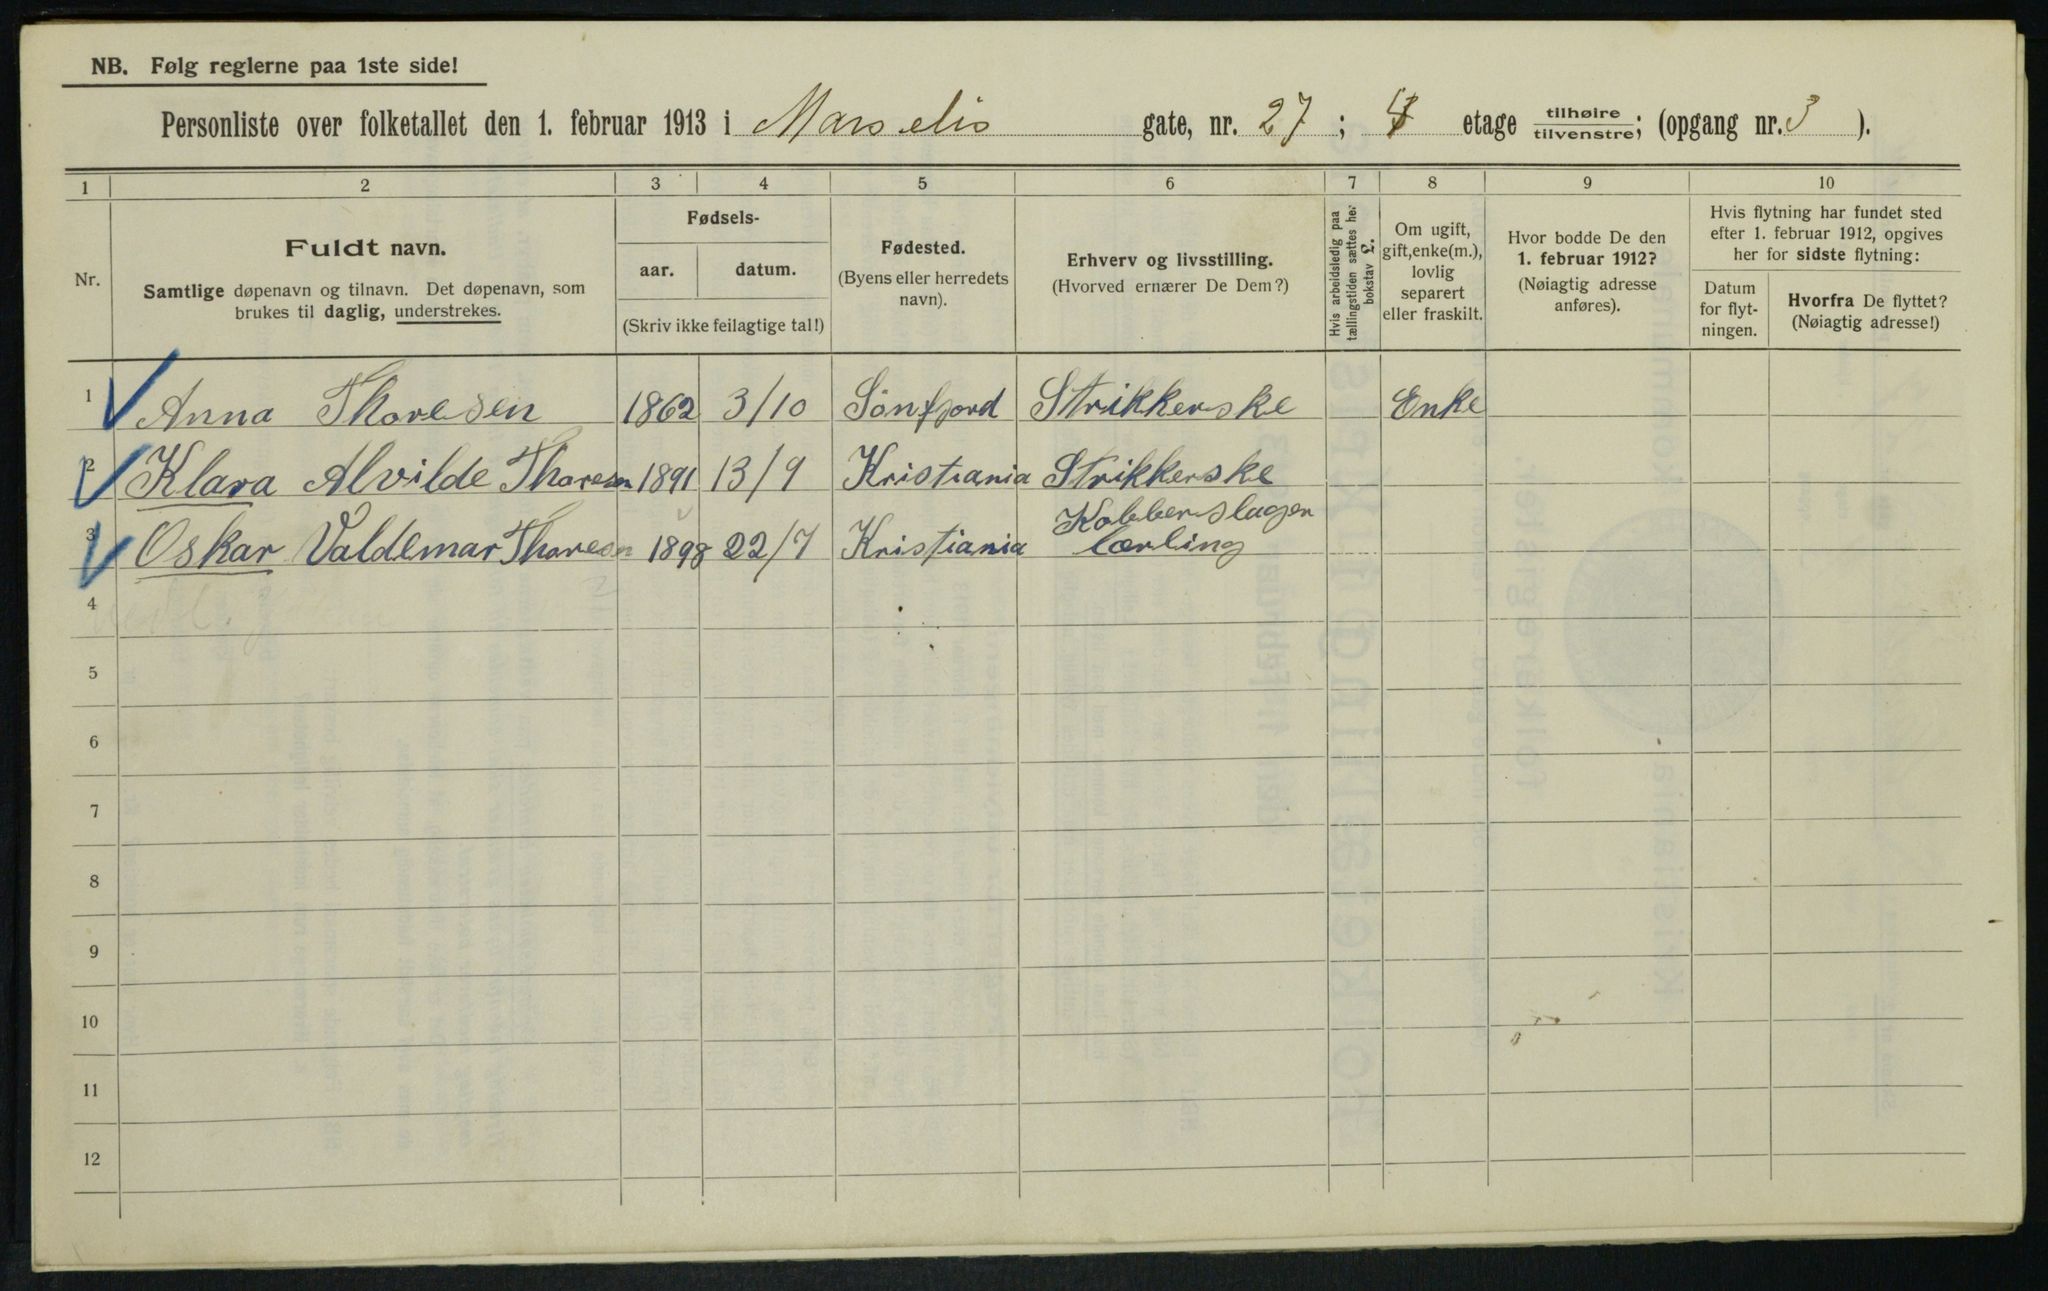 NB. Følg reglerne paa 1ste side!
Personliste over folketallet den 1. februar 1913 i Marselis gate, nr. 27; etage tilhøire/tilvenstre; (opgang nr. 3).
1 2 3 4 5 6 7 8 9 10
Nr.
Fuldt navn.
Samtlige døpenavn og tilnavn. Det døpenavn, som
brukes til daglig, understrekes.
Fødsels-
aar. datum.
(Skriv ikke feilagtige tal!)
Fødested.
(Byens eller herredets
navn).
Erhverv og livsstilling.
(Hvorved ernærer De Dem?)
Hvis arbeidsledig paa
tællingstiden sættes her
bokstav L.
Om ugift,
gift, enke(m.),
lovlig
separert
eller fraskilt.
Hvor bodde De den
1. februar 1912?
(Nøiagtig adresse
anføres).
Hvis flytning har fundet sted
efter 1. februar 1912, opgives
her for sidste flytning:
Datum
for flyt-
ningen.
Hvorfra De flyttet?
(Nøiagtig adresse!)
1 Anna Thoresen 1862 3/10 Sönfjord Strikkerske Enke
2 Klara Alvilde Thoresen 1891 13/9 Kristiania Strikkerske
3 Oskar Valdemar Thoresen 1898 22/7 Kristiania Kobberslager
lærling
4
5
6
7
8
9
10
11
12